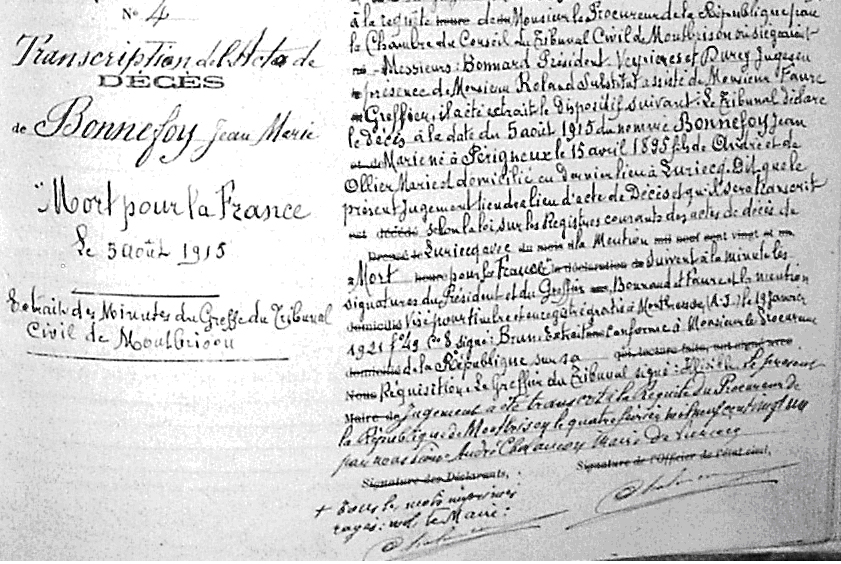 N° 4
Transcription de l'Acte de
DÉCÈS
de Bonnefoy Jean Marie
"Mort pour la France
Le 5 août 1915
Extrait des Minutes du Greffe du Tribunal
Civil de Montbrison
à la requête de Monsieur le Procureur de la République par
la Chambre du Conseil du Tribunal Civil de Montbrison où siégeaient
Messieurs: Bonnard Président Veyrières et Durey Juges en
présence de Monsieur Roland Substitut assisté de Monsieur Faure
Greffier, il a été extrait le dispositif suivant: Le Tribunal déclare
le décès à la date du 5 août 1915 du nommé Bonnefoy Jean
Marie né à Périgneux le 15 avril 1895 fils de André et de
Ollier Marie et domicilié en dernier lieu à Luriecq. Dit que le
présent Jugement tiendra lieu d'acte de Décès et qu'il sera transcrit
selon la loi sur les Registres courants des actes de décès de
Luriecq avec la Mention
"Mort pour la France" Suivent à la minute les
signatures du Président et du Greffier Bonnard et Faure et la mention
Visé pour timbre et enregistré gratis à Montbrison (A.J.) le 19 Janvier
1921 f° 49 C° 8 signé: Brun. Extrait conforme à Monsieur le Procureur
de la République sur sa
Réquisition. Le Greffier du Tribunal signé: le présent
Jugement a été transcrit à la Requête du Procureur de
la République de Montbrison le quatre février mil neuf cent vingt un
par nous André Maire de Luriecq
Signature des Déclarants,
Signature de l'Officier de l'état civil,
+ Tous les mots imprimés
rayés: nuls le Maire: